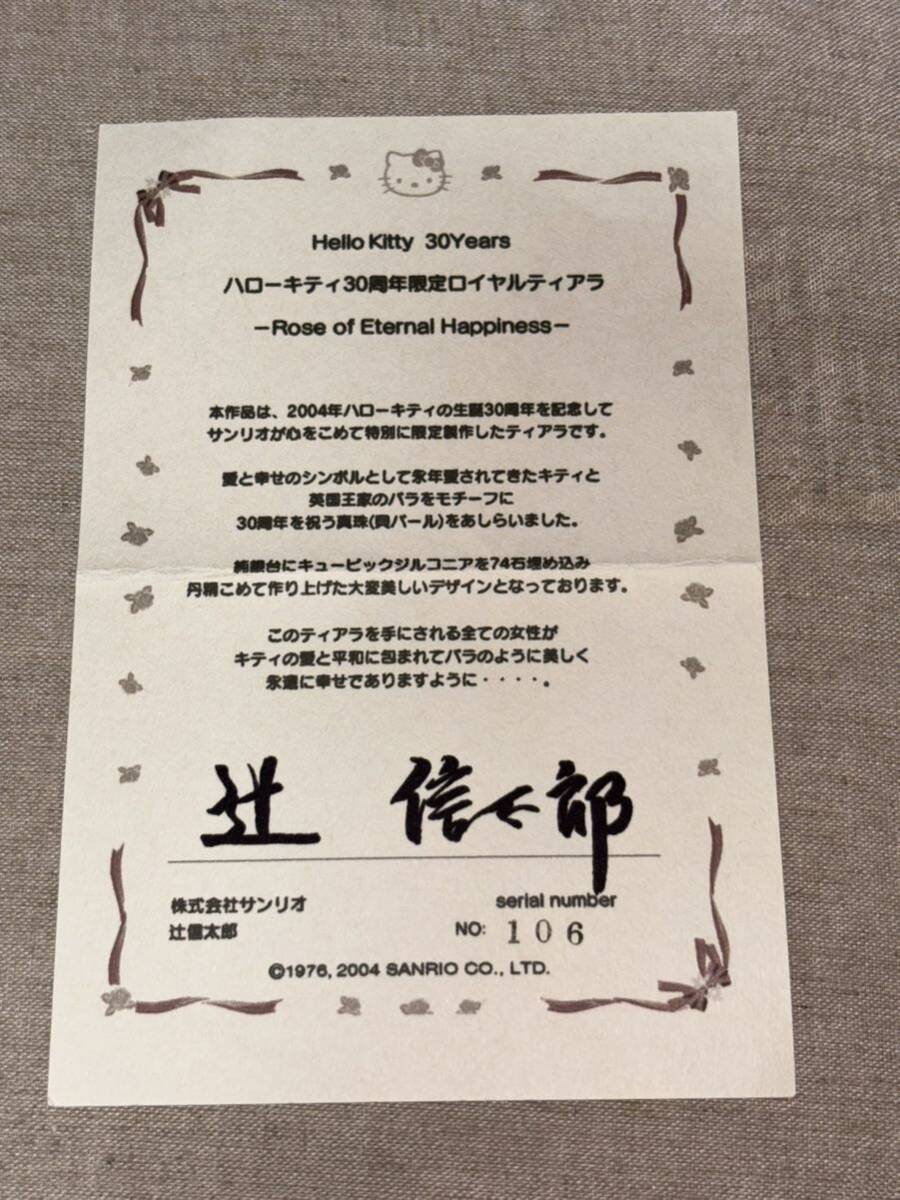 Hello Kitty 30Years
ハローキティ30周年限定ロイヤルティアラ
−Rose of Eternal Happiness−
本作品は、2004年ハローキティの生誕30周年を記念して
サンリオが心をこめて特別に限定製作したティアラです。
愛と幸せのシンボルとして永年愛されてきたキティと
英国王家のバラをモチーフに
30周年を祝う真珠(貝パール)をあしらいました。
純銀台にキュービックジルコニアを74石埋め込み
丹精こめて作り上げた大変美しいデザインとなっております。
このティアラを手にされる全ての女性が
キティの愛と平和に包まれてバラのように美しく
永遠に幸せでありますように・・・・。
辻 信太郎
株式会社サンリオ
辻信太郎
serial number
NO: 106
©1976, 2004 SANRIO CO., LTD.